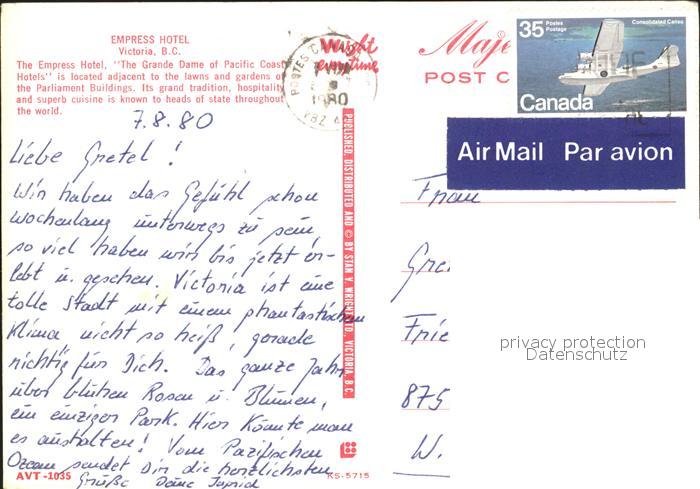 EMPRESS HOTEL
Victoria, B.C.
The Empress Hotel, "The Grande Dame of Pacific Coast
Hotels" is located adjacent to the lawns and gardens of
the Parliament Buildings. Its grand tradition, hospitality
and superb cuisine is known to heads of state throughout
the world.
7.8.80
Liebe Gretel!
Wir haben das Gefühl schon
wochenlang unterwegs zu sein,
so viel haben wir bis jetzt er-
lebt u. gesehen. Victoria ist eine
tolle Stadt mit einem phantastischen
Klima nicht so heiß, gerade
richtig für Dich. Das ganze Jahr
über blühen Rosen u. Blumen,
ein einziger Park. Hier könnte man
es aushalten! Vom Pazifischen
Ozean sendet Dir die herzlichsten
Grüße Deine
AVT-1035
KS-5715
PUBLISHED, DISTRIBUTED AND © BY STAN V. WRIGHT LTD. VICTORIA, B.C.
Wright
everytime
POSTES CANADA
1980
V8Z
Maje
POST C
35 Postes
Postage
Consolidated Canso
Canada
Air Mail Par avion
Frau
Gre
Frie
875
W.
privacy protection
Datenschutz